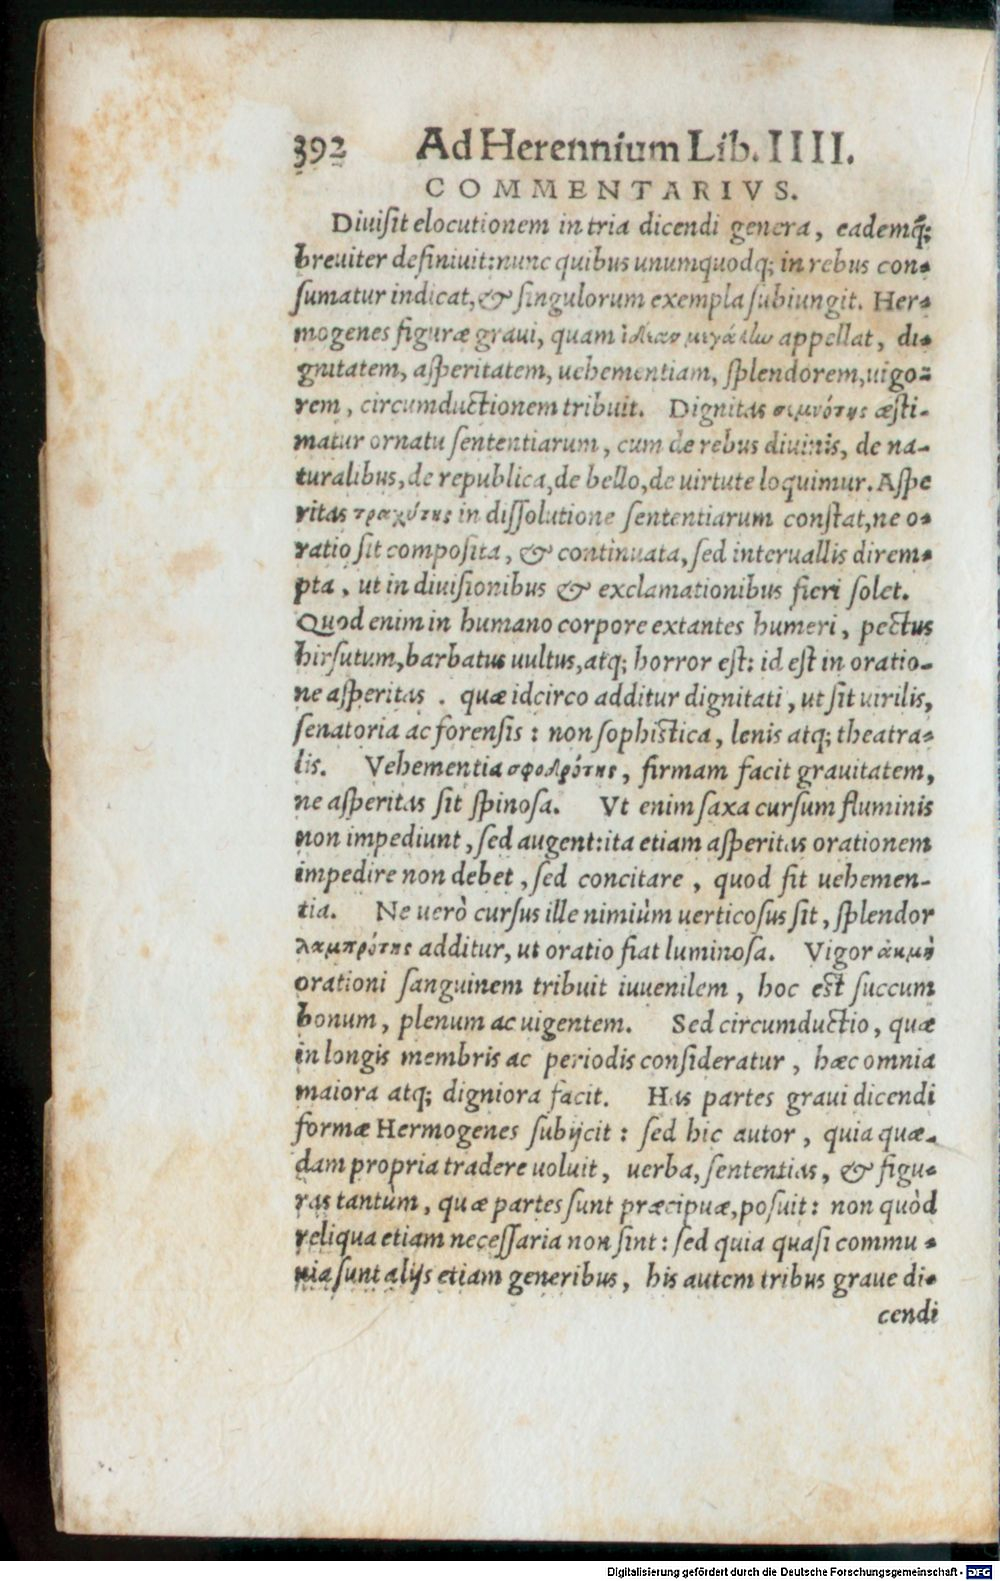 392 Ad Herennium Lib. IIII.
COMMENTARIVS.
Diuisit elocutionem in tria dicendi genera, eademq́;
breuiter definiuit: nunc quibus unumquodq; in rebus con-
sumatur indicat, & singulorum exempla subiungit. Her-
mogenes figuræ graui, quam appellat, di-
gnitatem, asperitatem, uehementiam, splendorem, uigo-
rem, circumductionem tribuit. Dignitas σεμνότης æsti-
matur ornatu sententiarum, cum de rebus diuinis, de na-
turalibus, de republica, de bello, de uirtute loquimur. Aspe
ritas τραχύτης in dissolutione sententiarum constat, ne o-
ratio sit composita, & continuata, sed interuallis direm-
pta, ut in diuisionibus & exclamationibus fieri solet.
Quod enim in humano corpore extantes humeri, pectus
hirsutum, barbatus uultus, atq; horror est: id est in oratio-
ne asperitas . quæ idcirco additur dignitati, ut sit uirilis,
senatoria ac forensis: non sophistica, lenis atq; theatra-
lis. Vehementia σφοδρότης, firmam facit grauitatem,
ne asperitas sit spinosa. Vt enim saxa cursum fluminis
non impediunt, sed augent: ita etiam asperitas orationem
impedire non debet, sed concitare, quod fit uehemen-
tia. Ne uerò cursus ille nimiùm uerticosus sit, splendor
λαμπρότης additur, ut oratio fiat luminosa. Vigor ἀκμὴ
orationi sanguinem tribuit iuuenilem, hoc est succum
bonum, plenum ac uigentem. Sed circumductio, quæ
in longis membris ac periodis consideratur, hæc omnia
maiora atq; digniora facit. Has partes graui dicendi
formæ Hermogenes subijcit: sed hic autor, quia quæ-
dam propria tradere uoluit, uerba, sententias, & figu-
ras tantùm, quæ partes sunt præcipuæ, posuit: non quòd
reliqua etiam necessaria non sint: sed quia quasi commu-
nia sunt alijs etiam generibus, his autem tribus graue di-
cendi
Digitalisierung gefördert durch die Deutsche Forschungsgemeinschaft - DFG